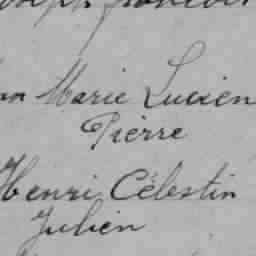 Marie Lucien
Pierre
Henri Célestin
Julien